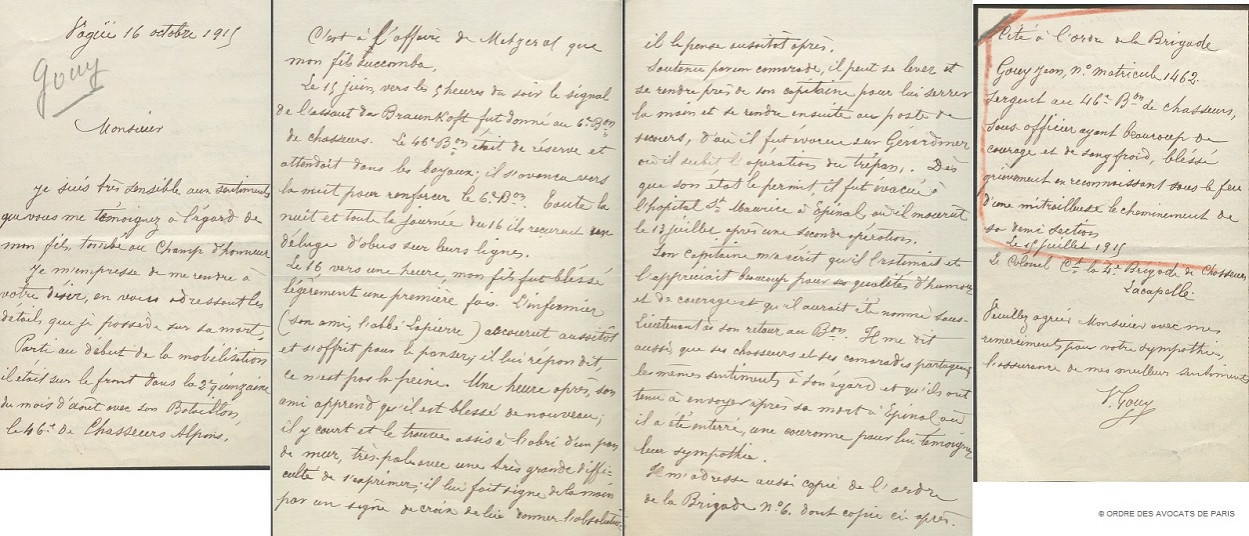 Vogüé 16 octobre 1915
Gouy
Monsieur
Je suis très sensible aux sentiments
que vous me témoignez à l'égard de
mon fils, tombé au Champ d'honneur
Je m'empresse de me rendre à
votre désir, en vous adressant les
détails que je possède sur sa mort.
Parti au début de la mobilisation
il était sur le front dans la 2e quinzaine
du mois d'août avec son Bataillon,
le 46e de Chasseurs Alpins.
C'est à l'affaire de Metzeral que
mon fils succomba.
Le 15 juin, vers les 5 heures du soir le signal
de l'assaut du Braunkopft fut donné au 6e Bon
de chasseurs. Le 46e Bon était de réserve et
attendait dans les boyaux; il s'avança vers
la nuit pour renforcer le 6e Bon. Toute la
nuit et toute la journée du 16 ils reçurent un
déluge d'obus sur leurs lignes.
Le 16 vers une heure, mon fils fut blessé
légèrement une première fois. L'infirmier
(son ami, l'abbé Lapierre) accourut aussitôt
et s'offrit pour le panser, il lui répondit,
ce n'est pas la peine. Une heure après, son
ami apprend qu'il est blessé de nouveau;
il y court et le trouve assis à l'abri d'un pan
de mur, très pale avec une très grande diffi-
culté de s'exprimer; il lui fait signe de la main
par un signe de croix de lui donner l'absolution
il le pense aussitôt après.
Soutenu par un camarade, il peut se lever et
se rendre près de son capitaine pour lui serrer
la main et se rendre ensuite au poste de
secours, d'où il fut évacué sur Gérardmer
où il subit l'opération du trépan. Dès
que son état le permit, il fut évacué à
l'hopital St Maurice à Epinal où il mourut
le 13 juillet après une seconde opération.
Son Capitaine m'écrit qu'il l'estimait et
l'appréciait beaucoup pour ses qualités d'humour
et de courage et qu'il aurait été nommé sous-
lieutenant à son retour au Bon. Il me dit
aussi, que ses chasseurs et ses camarades partageaient
les mêmes sentiments à son égard et qu'ils ont
tenu à envoyer après sa mort à Epinal où
il a été enterré, une couronne pour lui témoigner
leur sympathie.
Il m'adresse aussi copie de l'ordre
de la Brigade No 6. dont copie ci après.
Cité à l'ordre de la Brigade
Gouy Jean, No matricule 1462.
Sergent au 46e Bon de chasseurs,
Sous-officier ayant beaucoup de
courage et de sang froid, blessé
grièvement en reconnaissant sous le feu
d'une mitrailleuse le cheminement de
sa demi section
Le 15 juillet 1915
Le Colonel Ct la 4e Brigade de Chasseurs,
Lacapelle
Veuillez agréer Monsieur avec mes
remerciments pour votre sympathie,
l'assurance de mes meilleurs sentiments
V. Gouy
© ORDRE DES AVOCATS DE PARIS